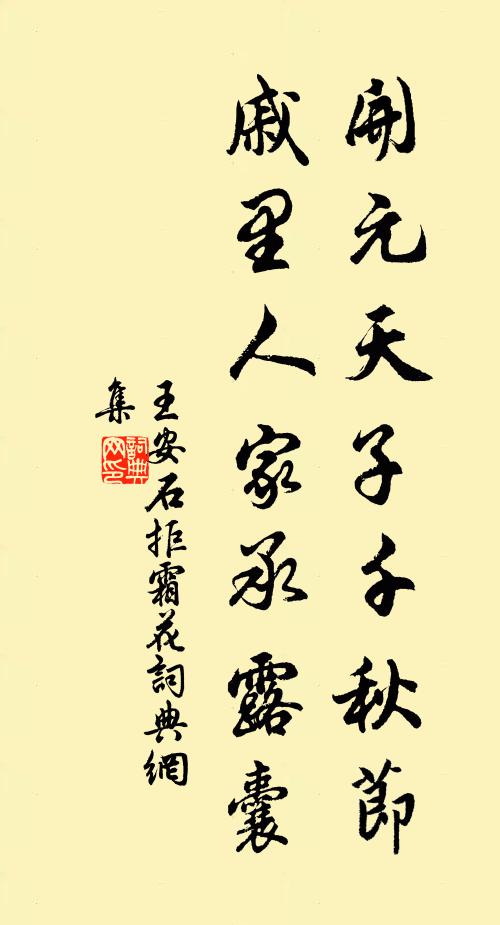 開元天子千秋節
戚里人家承露囊
王安石拒霜花詞典網
集
詞典網印